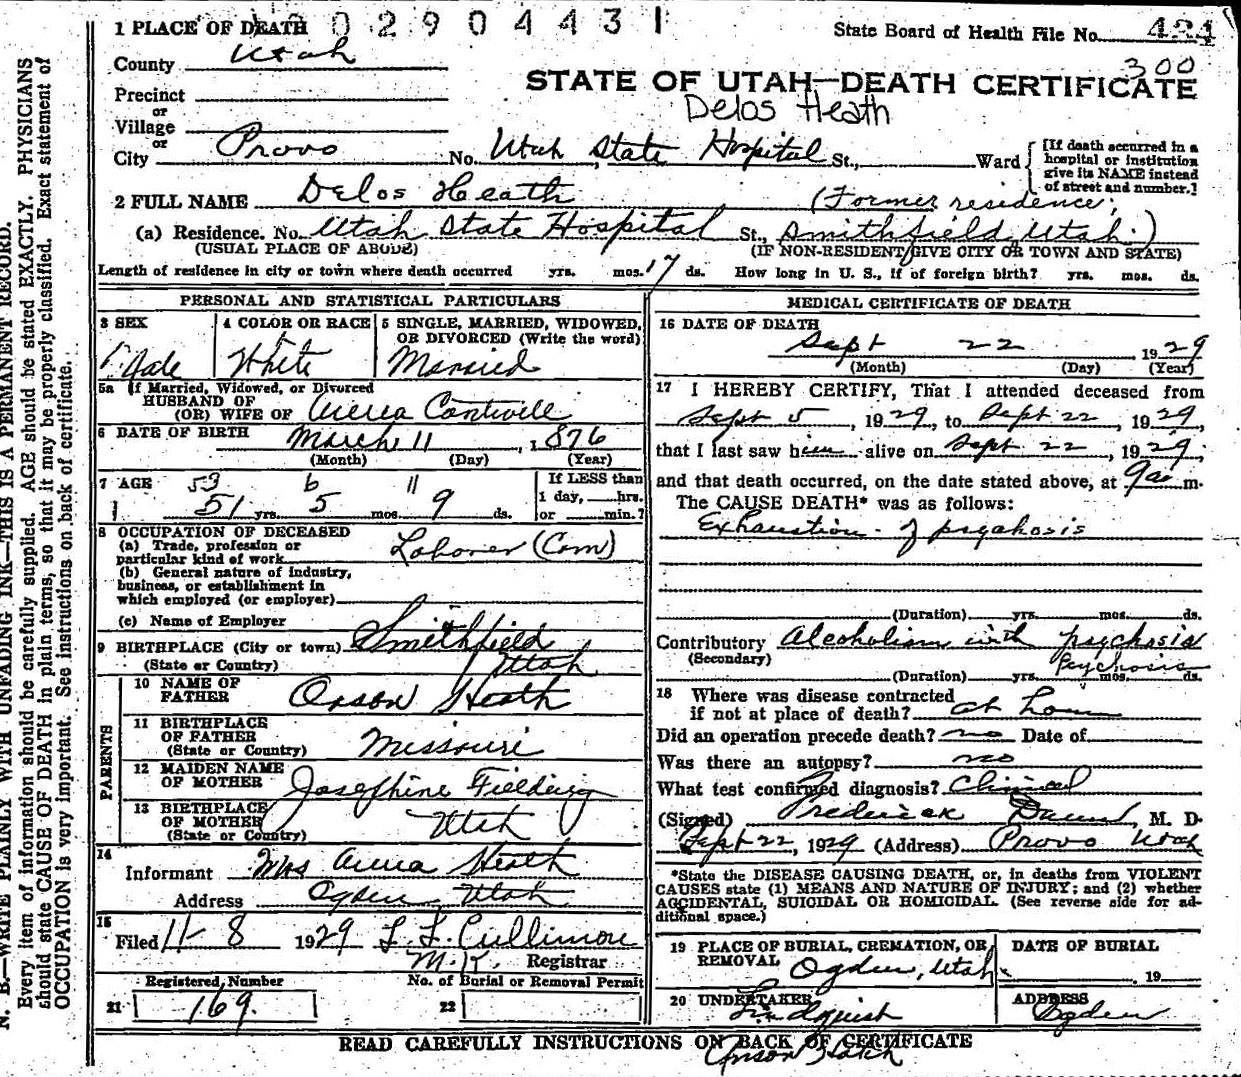 1 PLACE OF DEATH 02904431
State Board of Health File No. 424
County Utah
300
STATE OF UTAH—DEATH CERTIFICATE
Precinct
or
Delos Heath
Village
or
City Provo No. Utah State Hospital St., Ward
[If death occurred in a
hospital or institution
give its NAME instead
of street and number.]
2 FULL NAME Delos Heath (Former residence;
(a) Residence. No. Utah State Hospital St., Smithfield, Utah.)
(USUAL PLACE OF ABODE) (IF NON-RESIDENT GIVE CITY OR TOWN AND STATE)
Length of residence in city or town where death occurred yrs. mos. 17 ds. How long in U. S., if of foreign birth? yrs. mos. ds.
PERSONAL AND STATISTICAL PARTICULARS
3 SEX 4 COLOR OR RACE 5 SINGLE, MARRIED, WIDOWED,
OR DIVORCED (Write the word)
Male White Married
5a If Married, Widowed, or Divorced
HUSBAND OF
(OR) WIFE OF Cantwell
6 DATE OF BIRTH March 11, 1876
(Month) (Day) (Year)
7 AGE 53 6 11 If LESS than
1 day, hrs.
51 yrs. 5 mos. 9 ds. or min.?
8 OCCUPATION OF DECEASED
(a) Trade, profession or
particular kind of work Laborer (Com)
(b) General nature of industry,
business, or establishment in
which employed (or employer)
(c) Name of Employer
9 BIRTHPLACE (City or town) Smithfield
(State or Country) Utah
PARENTS
10 NAME OF
FATHER Orson Heath
11 BIRTHPLACE
OF FATHER
(State or Country) Missouri
12 MAIDEN NAME
OF MOTHER Josephine Fielding
13 BIRTHPLACE
OF MOTHER
(State or Country) Utah
14
Informant Mrs Anna Heath
Address Ogden, Utah
15
Filed 11-8 1929 L. L. Cullimore
M. K. Registrar
Registered Number No. of Burial or Removal Permit
21 169. 22
MEDICAL CERTIFICATE OF DEATH
16 DATE OF DEATH
Sept 22 1929
(Month) (Day) (Year)
17 I HEREBY CERTIFY, That I attended deceased from
Sept 5, 1929, to Sept 22, 1929,
that I last saw him alive on Sept 22, 1929,
and that death occurred, on the date stated above, at 9 a m.
The CAUSE DEATH* was as follows:
Exhaustion of psychosis
(Duration) yrs. mos. ds.
Contributory Alcoholism with psychosis
(Secondary) Psychosis
(Duration) yrs. mos. ds.
18 Where was disease contracted
if not at place of death? at home
Did an operation precede death? no Date of
Was there an autopsy? no
What test confirmed diagnosis? Clinical
(Signed) Frederick, M. D.
Sept 22, 1929 (Address) Provo Utah
*State the DISEASE CAUSING DEATH, or, in deaths from VIOLENT
CAUSES state (1) MEANS AND NATURE OF INJURY; and (2) whether
ACCIDENTAL, SUICIDAL OR HOMICIDAL. (See reverse side for ad-
ditional space.)
19 PLACE OF BURIAL, CREMATION, OR
REMOVAL Ogden, Utah
DATE OF BURIAL
19
20 UNDERTAKER Lindquist
ADDRESS Ogden
READ CAREFULLY INSTRUCTIONS ON BACK OF CERTIFICATE
N. B.—WRITE PLAINLY WITH UNFADING INK—THIS IS A PERMANENT RECORD.
Every item of information should be carefully supplied. AGE should be stated EXACTLY. PHYSICIANS
should state CAUSE OF DEATH in plain terms, so that it may be properly classified. Exact statement of
OCCUPATION is very important. See instructions on back of certificate.